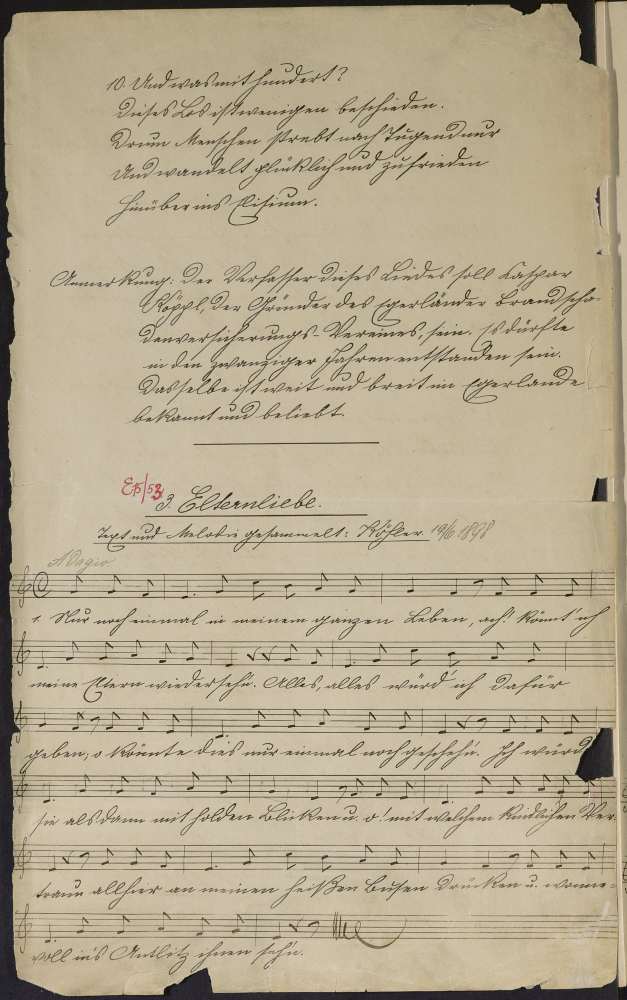 10. Und was mit hundert?
Dieses Los ist wenigen beschieden.
Drum Menschen strebt nach Tugend nur
Und wandelt glücklich und zufrieden
Hinüber ins Elisium.
Anmerkung: Der Verfasser dieses Liedes soll Kaspar
Köppl, der Gründer des Egerländer Brandscha-
denversicherungs-Vereines, sein. Es dürfte
in den zwanziger Jahren entstanden sein.
Dasselbe ist weit und breit im Egerlande
bekannt und beliebt.
3. Elternliebe.
Text und Melodie gesammelt: Köhler. 19/6 1898
Adagio
1. Nur noch einmal in meinem ganzen Leben, ach! könnt' ich
meine Eltern wiederseh'n. Alles, alles würd' ich dafür
geben, o könnte dies nur einmal noch gescheh'n. Ich würd
sie alsdann mit holden Blicken u. o! mit welchem kindlichen Ver-
traun allhier an meinen heißen Busen drücken u. wonne-
voll in's Antlitz ihnen seh'n.